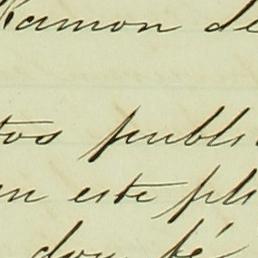 Ramon de
tos publi
en este pli
doy fé